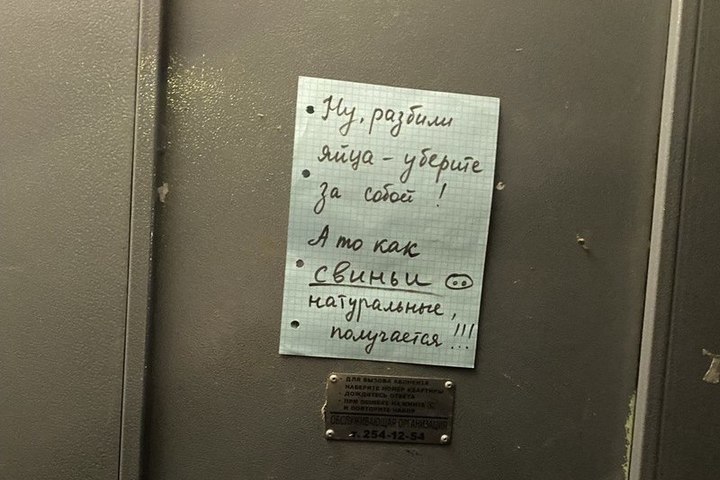 Ну, разбили
яйца - уберите
за собой !
А то как
свиньи
натуральные,
получается !!!
- ДЛЯ ВЫЗОВА АБОНЕНТА
НАБЕРИТЕ НОМЕР КВАРТИРЫ
- ДОЖДИТЕСЬ ОТВЕТА
- ПРИ ОШИБКЕ НАЖМИТЕ (С)
И ПОВТОРИТЕ НАБОР
ОБСЛУЖИВАЮЩАЯ ОРГАНИЗАЦИЯ
т. 254-12-54